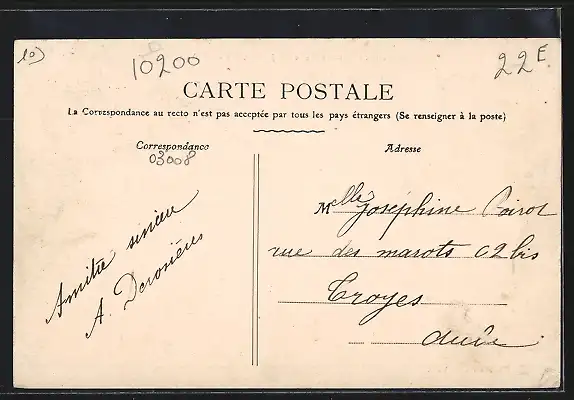 10)
10200
22E
CARTE POSTALE
La Correspondance au recto n'est pas acceptée par tous les pays étrangers (Se renseigner à la poste)
Correspondance
03008
Adresse
Amitié sincère
A.
Mlle Joséphine Poirot
rue des marots 62 bis
Troyes
Aube